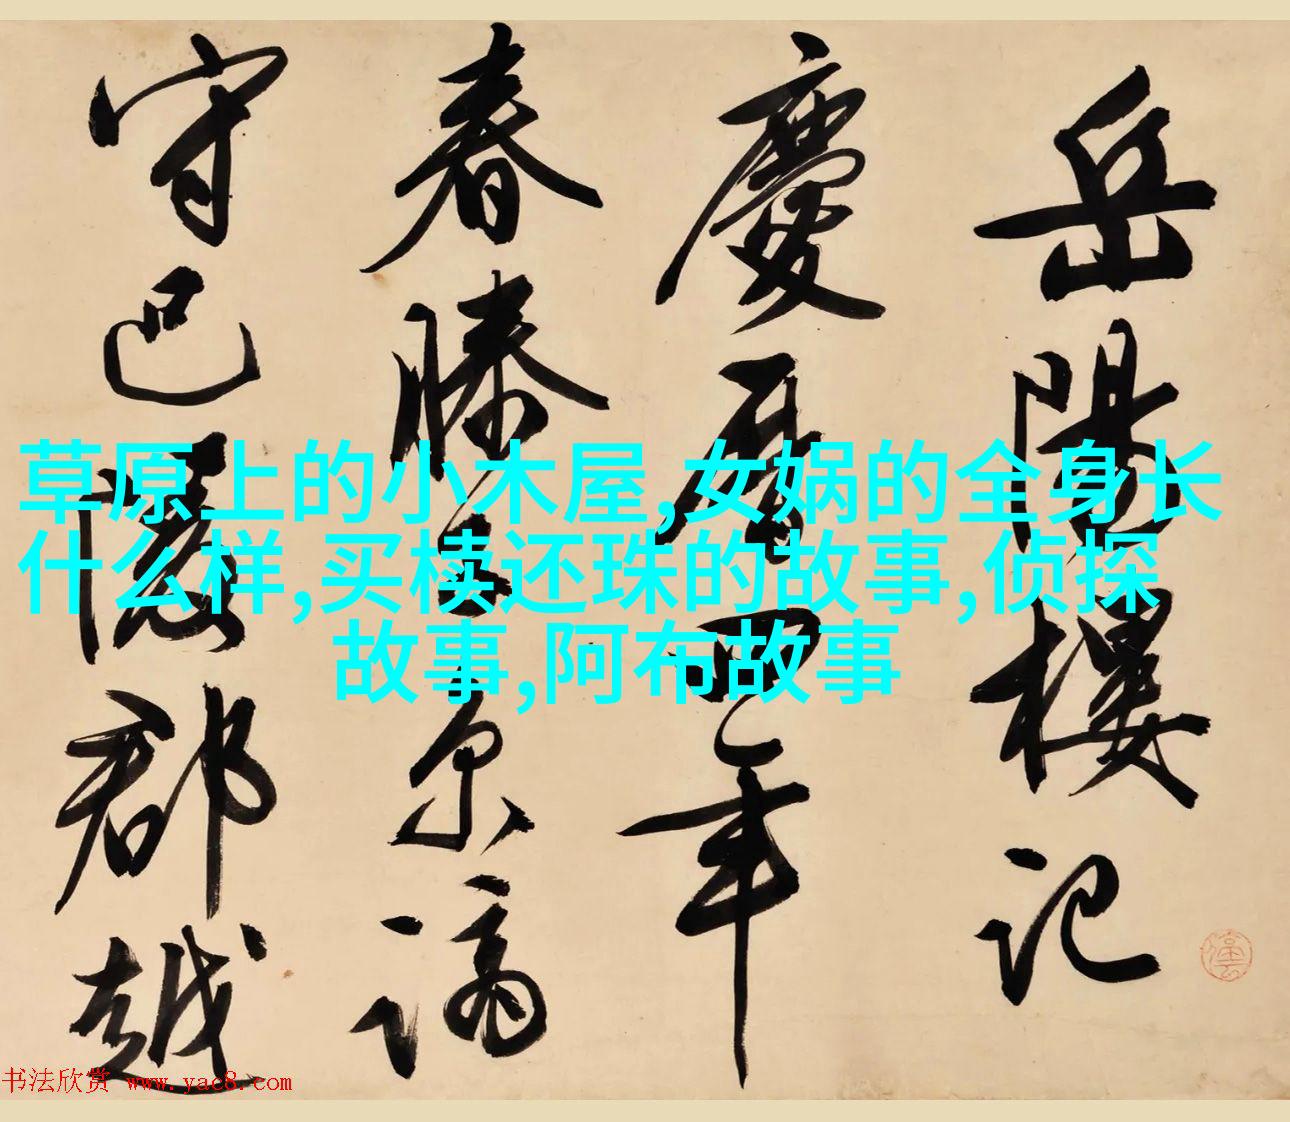 岳陽樓記
慶曆四年
春滕子京謫
守巴陵郡越
草原上的小木屋,女娲的全身长
什么样,买椟还珠的故事,侦探
故事,阿布故事
书法欣赏 www.yac8.com